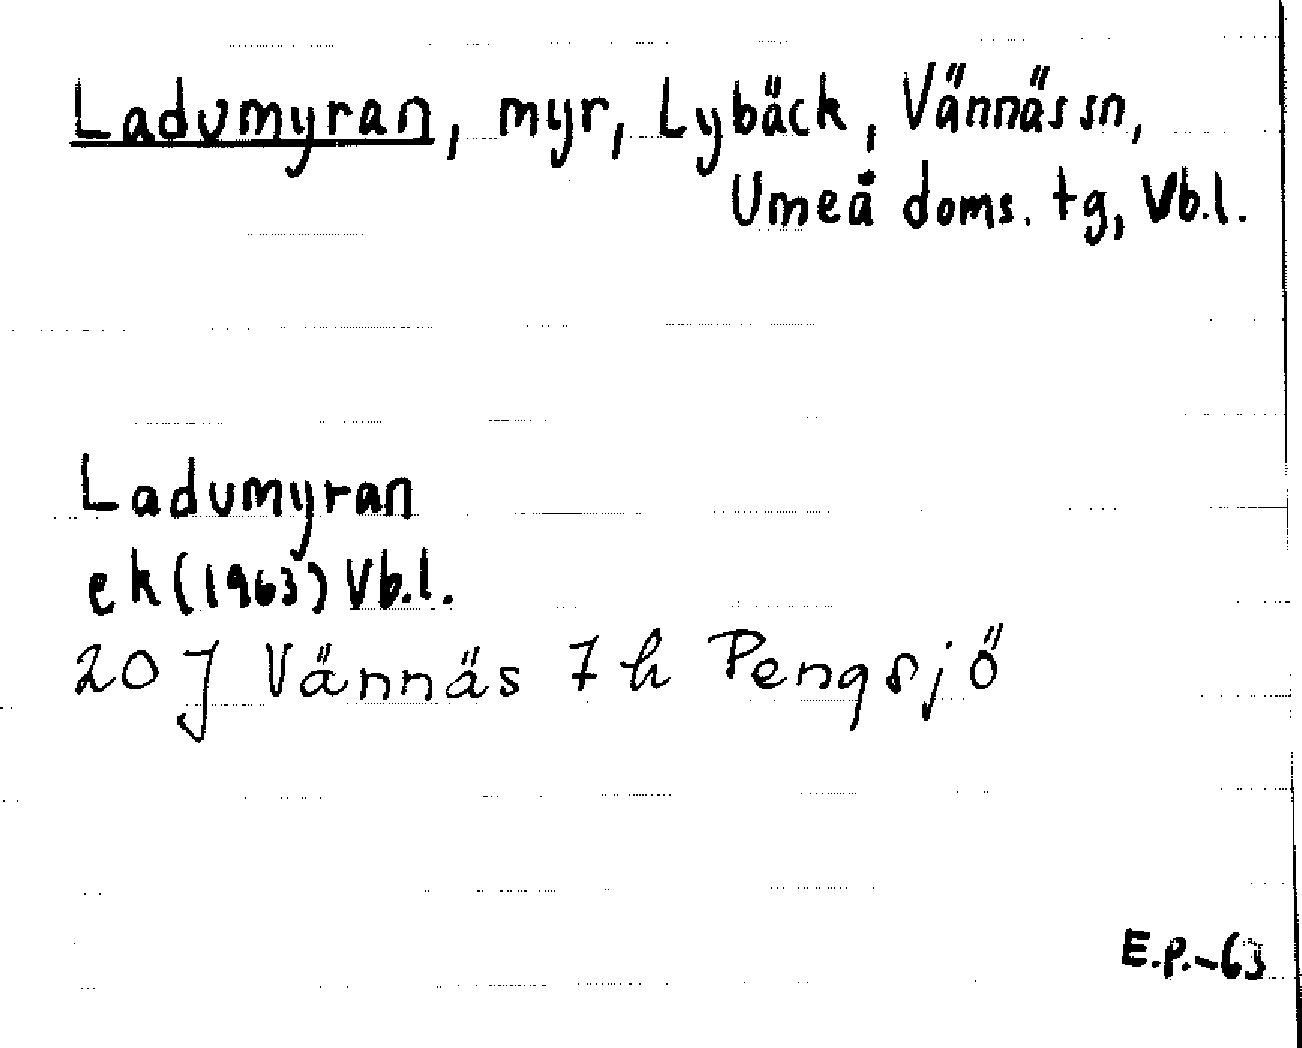 Ladumyran, myr, Lybäck, Vännäs sn,
Umeå doms. tg, Vb.l.
Ladumyran
ek (1963) Vb.l.
20 J Vännäs 7h Pengsjö
E.P.-63